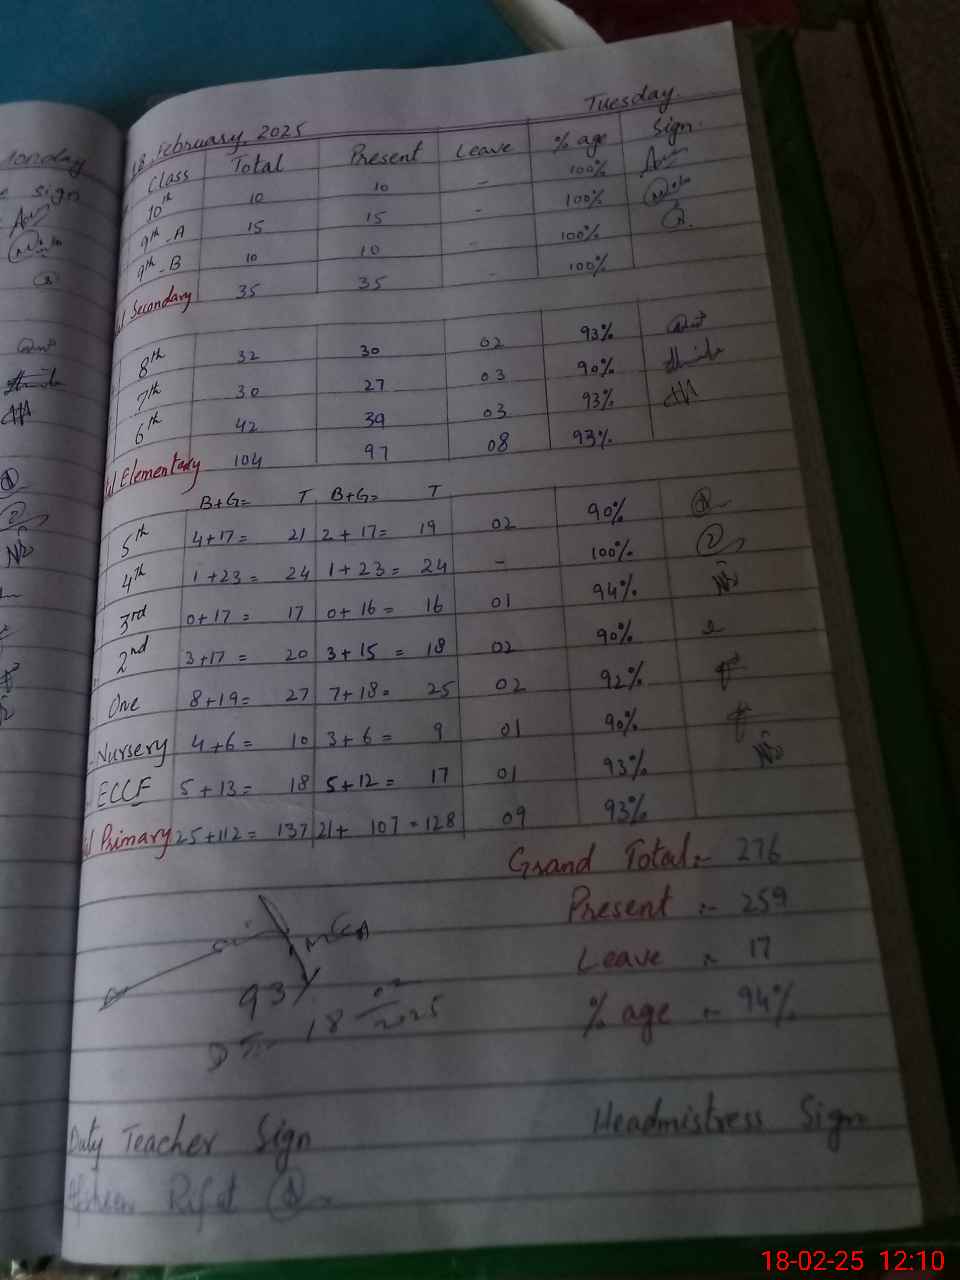 Monday
sign
18, February, 2025 Tuesday
Class Total Present Leave % age Sign.
10th 10 10 - 100%
9th-A 15 15 - 100%
9th-B 10 10 - 100%
Secondary 35 35 - 100%
8th 32 30 02 93%
7th 30 27 03 90%
6th 42 39 03 93%
Elementary 104 97 08 93%
B+G= T B+G= T
5th 4+17= 21 2+17= 19 02 90%
4th 1+23= 24 1+23= 24 - 100%
3rd 0+17= 17 0+16= 16 01 94%
2nd 3+17= 20 3+15= 18 02 90%
One 8+19= 27 7+18= 25 02 92%
Nursery 4+6= 10 3+6= 9 01 90%
ECCF 5+13= 18 5+12= 17 01 93%
Primary 25+112= 137 21+ 107=128 09 93%
Grand Total:- 276
Present :- 259
Leave :- 17
% age :- 94%
93%
18 02 2025
Duty Teacher Sign
Headmistress Sign
Rifat
18-02-25 12:10